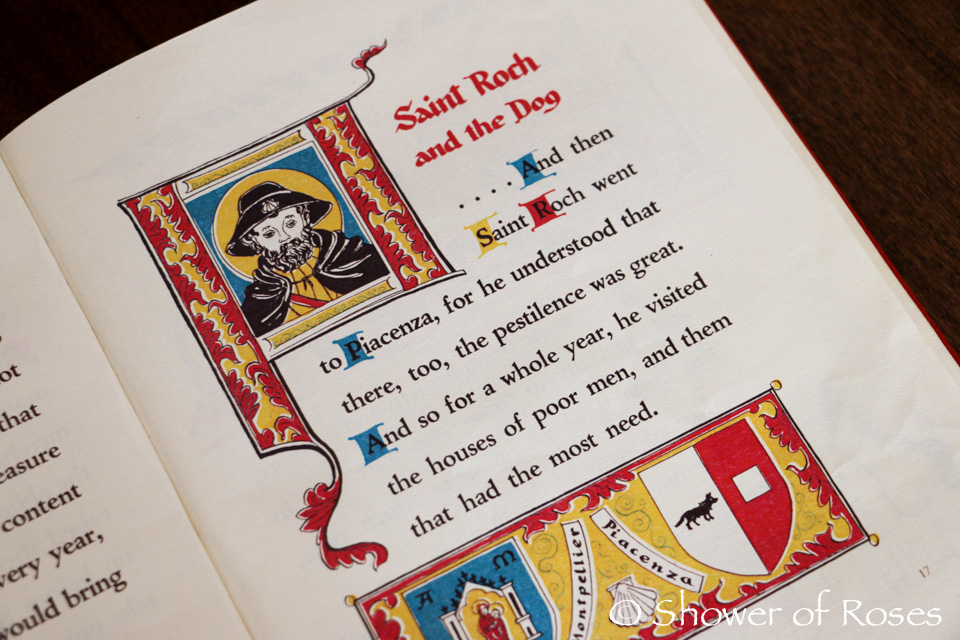 ot
that
easure
content
very year,
would bring
Saint Roch
and the Dog
. . . . And then
Saint Roch went
to Piacenza, for he understood that
there, too, the pestilence was great.
And so for a whole year, he visited
the houses of poor men, and them
that had the most need.
A M
Montpellier
Piacenza
17
© Shower of Roses